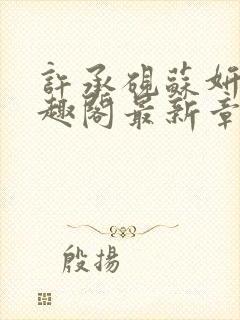 許承硯蘇妍
趣閣最新章
殷揚